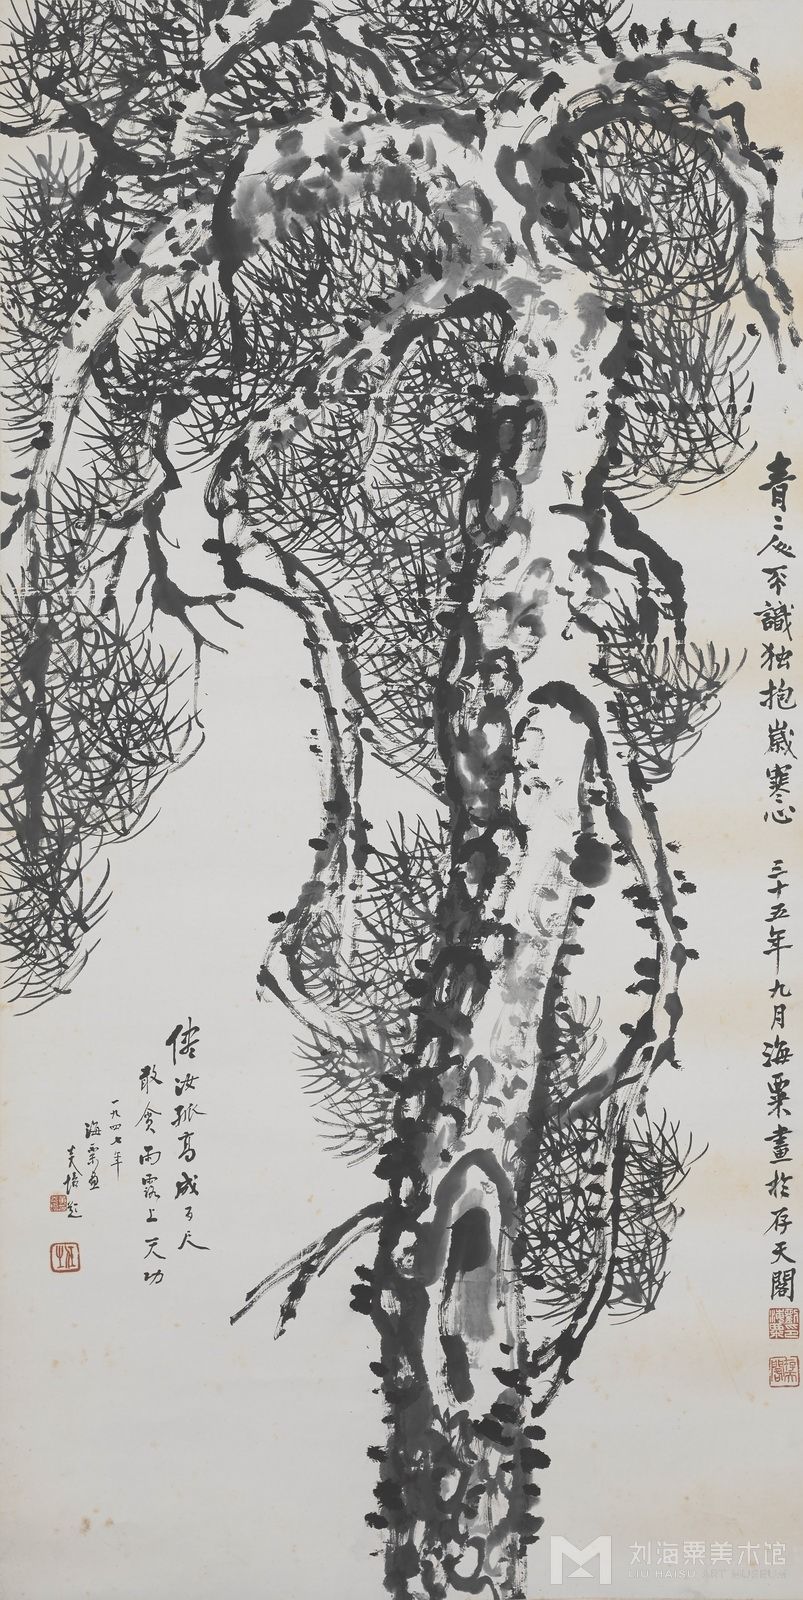 青〻人不識独抱歲寒心 三十五年九月海粟畫於存天閣
儘汝孤高成百尺
敢貪雨露上天功
一九四七年
海粟畫
题
刘海粟美术馆
LIU HAISU ART MUSEUM